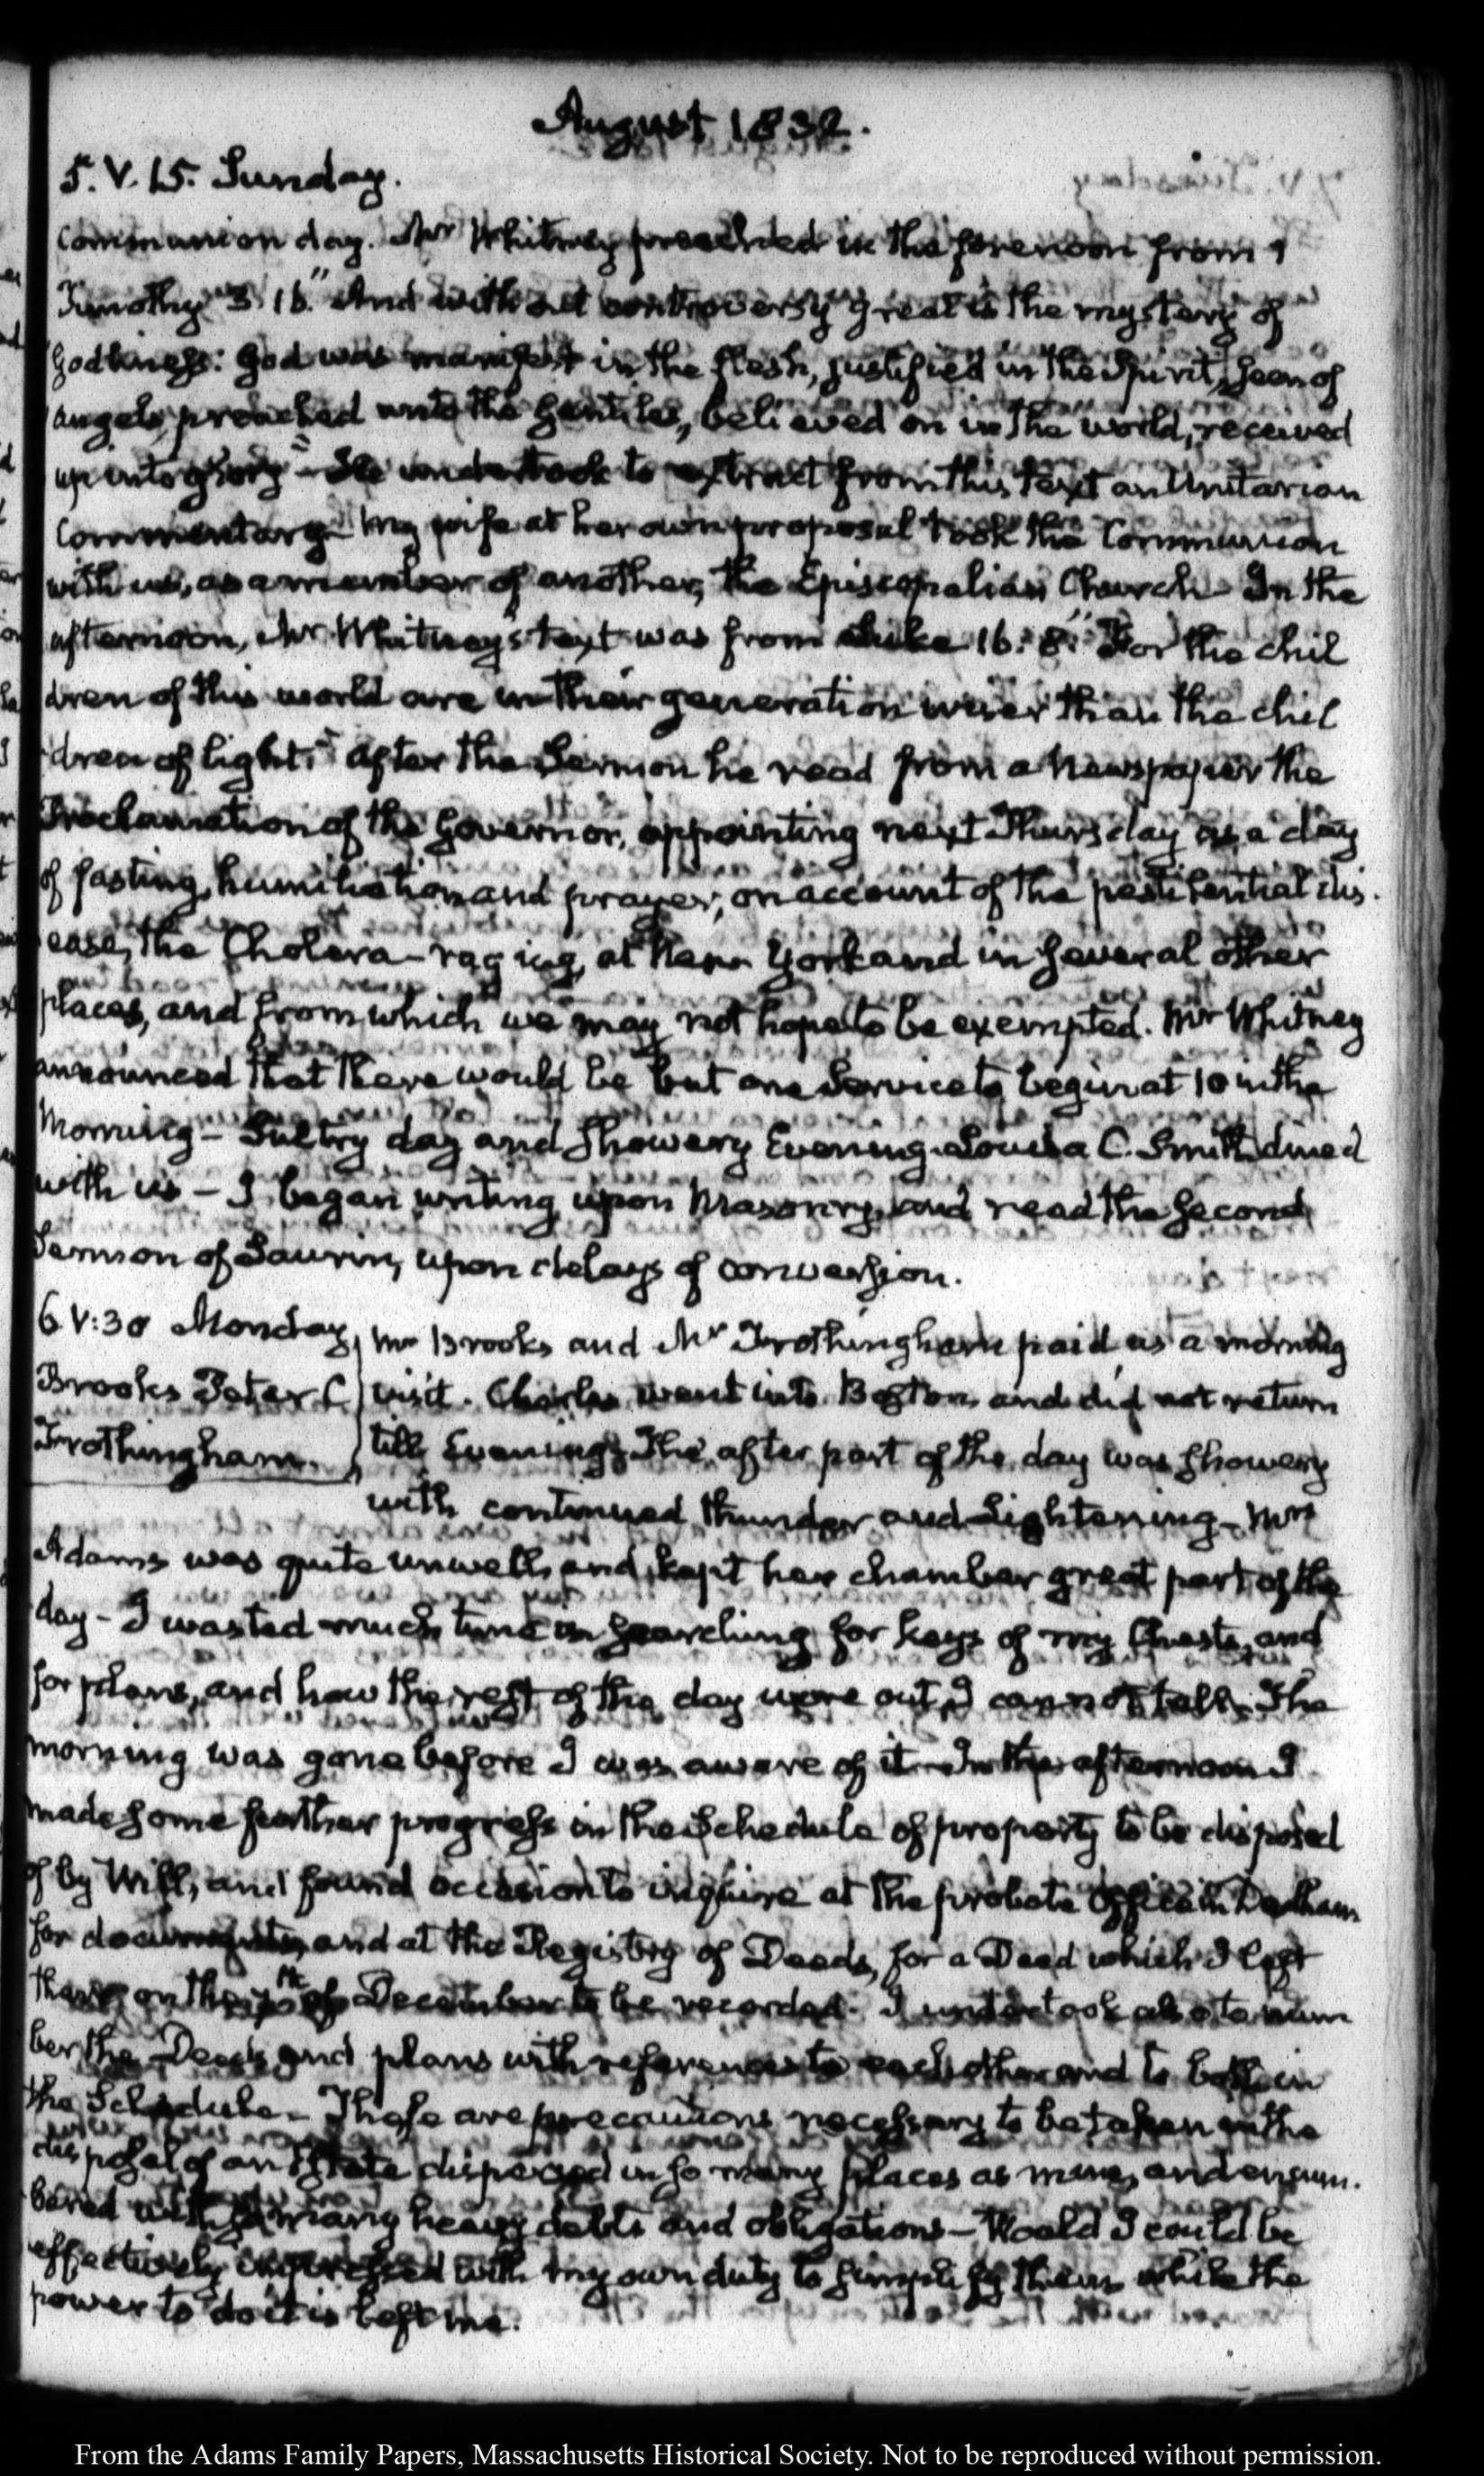 August 1832.
5. V. 15. Sunday.
Communion day. Mr Whitney preached in the forenoon from 1
Timothy 3. 16. "And without controversy great is the mystery of
Godliness: God was manifest in the flesh, justified in the Spirit, seen of
angels, preached unto the Gentiles, believed on in the world, received
up into glory" – He undertook to extract from this text an Unitarian
Commentary – My wife at her own proposal took the Communion
with us, as a member of another, the Episcopalian Church – In the
afternoon, Mr Whitney's text was from Luke 16. 8. "For the chil
dren of this world are in their generation wiser than the chil
dren of light." After the Sermon he read from a Newspaper the
Proclamation of the Governor, appointing next Thursday as a day
of fasting, humiliation and prayer, on account of the pestilential dis.
ease, the Cholera – raging, at New York and in several other
places, and from which we may not hope to be exempted. Mr Whitney
announced that there would be but one Service to begin at 10 in the
Morning – Sultry day and showery Evening. Louisa C. Smith dined
with us – I began writing upon Masonry, and read the second
Sermon of Saurin, upon delays of conversion.
6. V:30 Monday,
Brooks Peter C
Frothingham.
Mr Brooks and Mr Frothingham paid us a morning
visit. Charles went into Boston, and did not return
till Evening. The after part of the day was showery
with continued thunder and Lightening – Mrs
Adams was quite unwell, and kept her chamber great part of the
day – I wasted much time in searching for keys of my Chests, and
for plans, and how the rest of the day wore out, I cannot tell. The
morning was gone before I was aware of it – In the afternoon I
made some further progress in the Schedule of property to be disposed
of by Will, and found occasion to inquire at the probate Office in Dedham
for documents, and at the Registry of Deeds, for a Deed which I left
there on the of December to be recorded. I undertook also to num
ber the Deeds and plans with references to each other and to both in
the Schedule. – These are precautions necessary to be taken in the
disposal of an Estate dispersed in so many places as mine, and encum.
bered with so many heavy debts and obligations – Would I could be
effectively impressed with my own duty to simplify them while the
power to do it is left me.
From the Adams Family Papers, Massachusetts Historical Society. Not to be reproduced without permission.